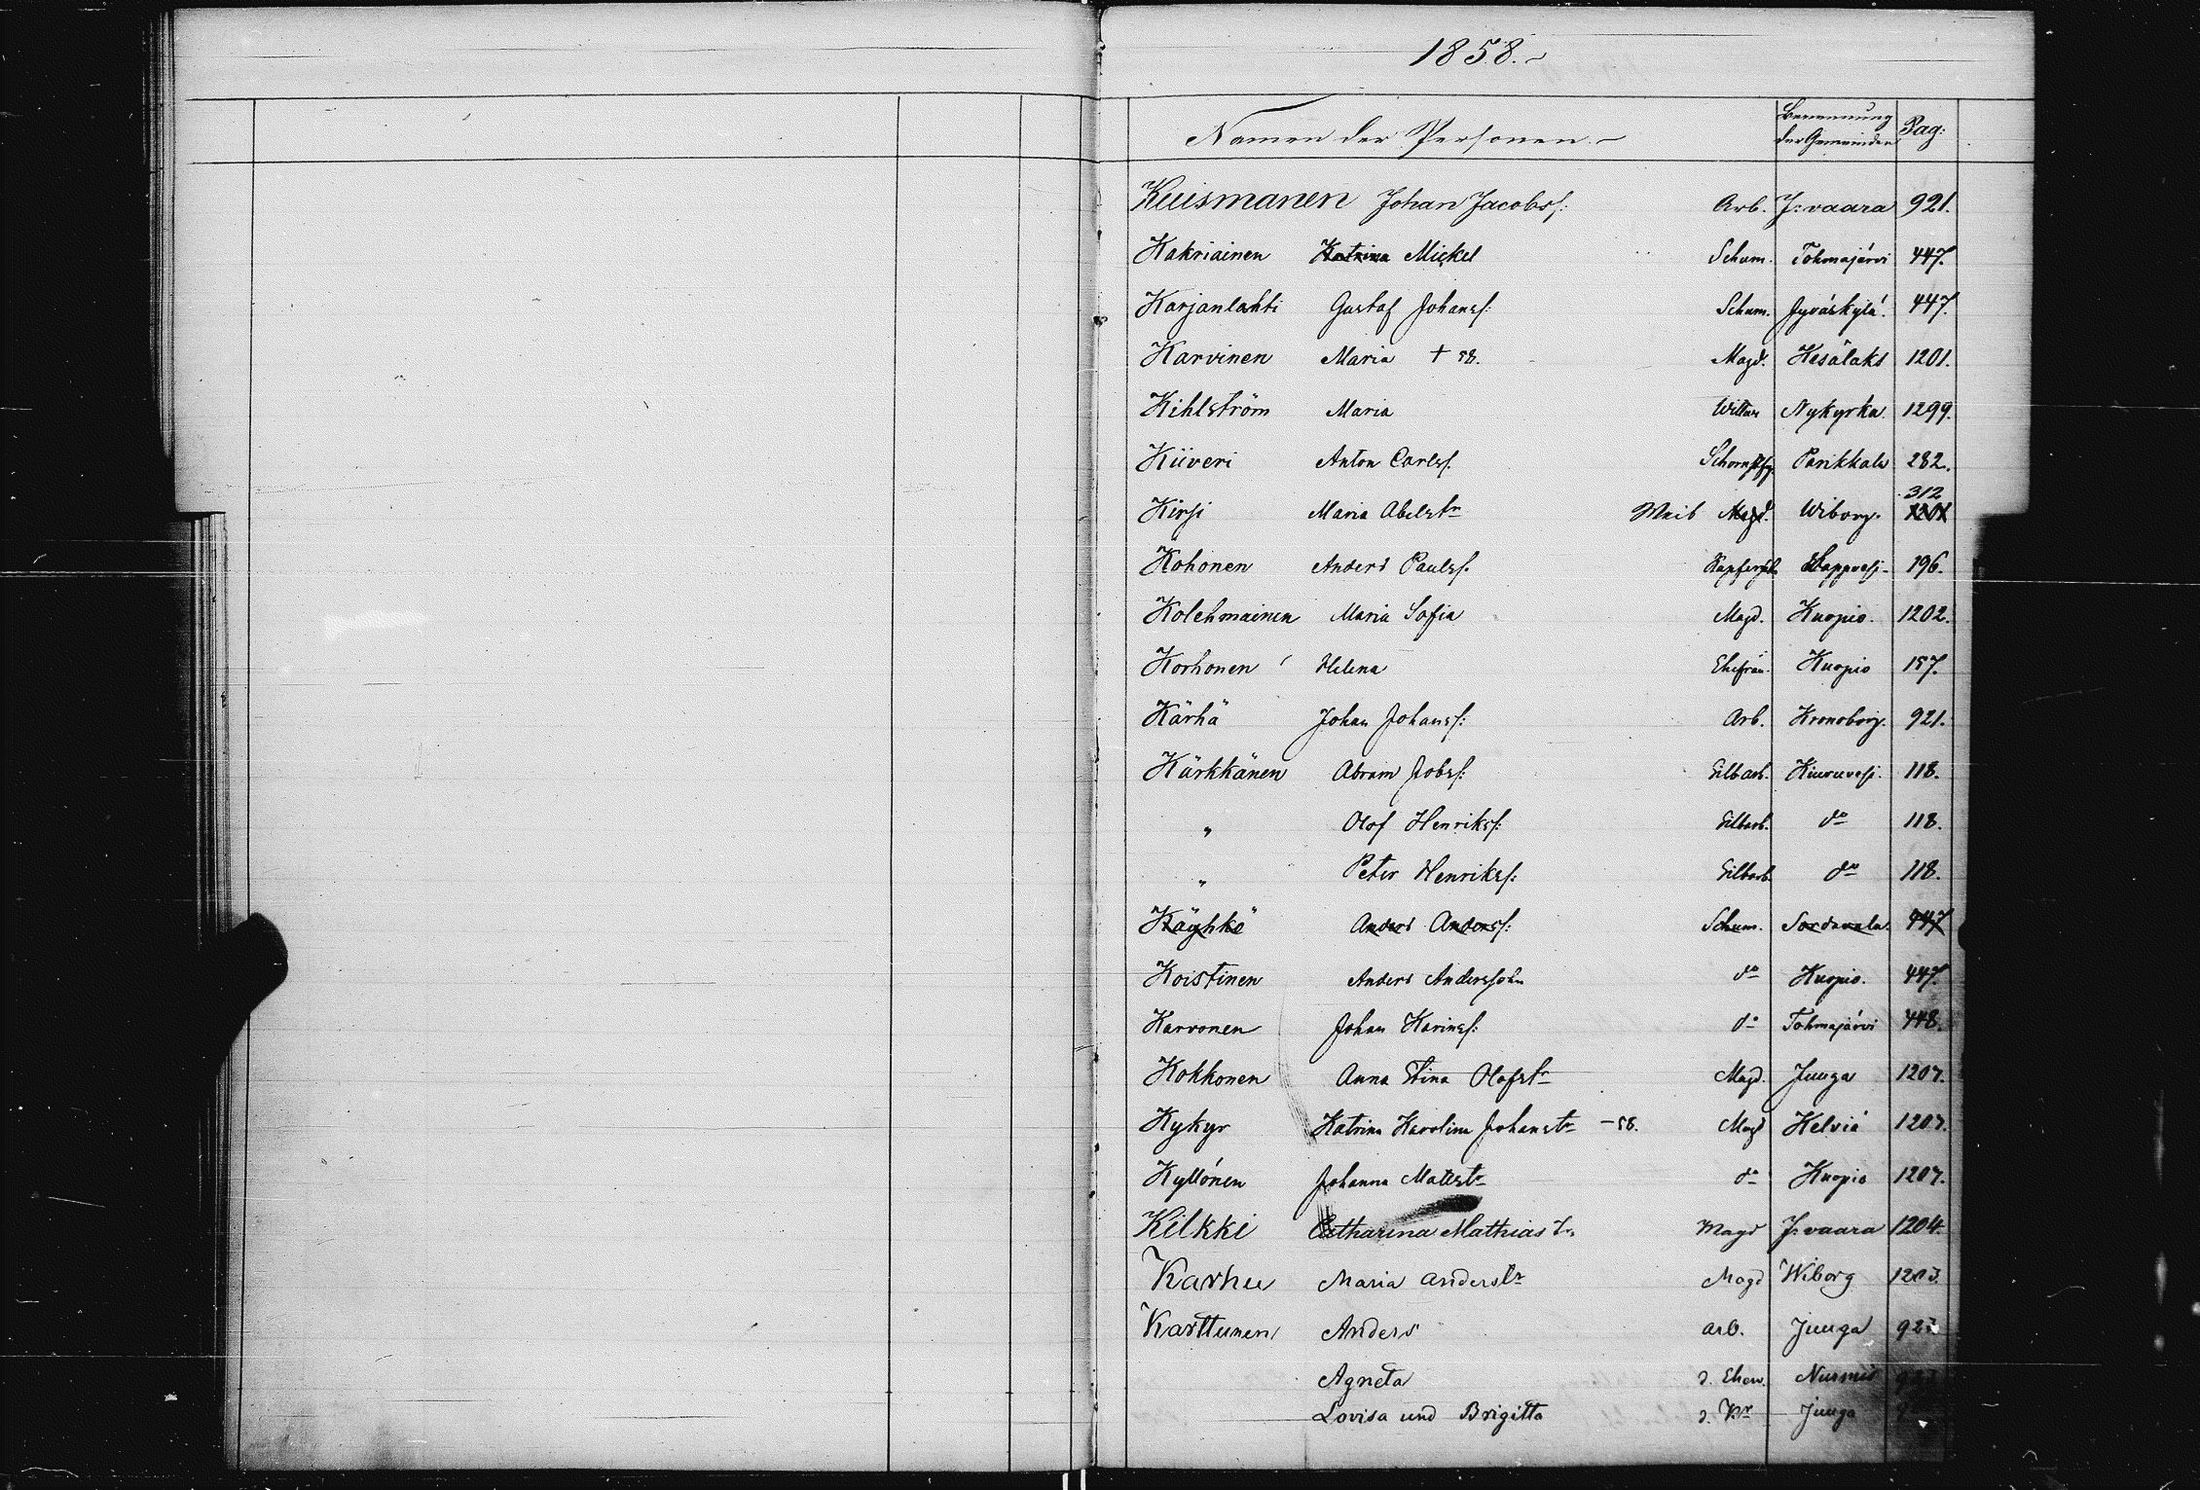 1858.
Namen der Personen. Benennung der Gemeinden Pag:
Kuismanen Johan Jacobsf: Arb. J:vaara 921.
Kakriainen Katrina Mickel Schum. Tohmajärvi 447.
Karjanlahti Gustaf Johansf: Schum. Jyväskylä. 447.
Karvinen Maria + 58. Magd. Kesälaks 1201.
Kihlström Maria Nykyrka. 1299.
Kiiveri Anton Carlsf. Parikkala 282.
312
Kirsi Maria Abelstr Weib Magd. Wiborg. 1201
Kohonen Anders Paulsf. Lappvesi 196.
Kolehmainen Maria Sofia Magd. Kuopio. 1202.
Korhonen Helena Ehefrau. Kuopio 157.
Kärhä Johan Johansf: Arb. Kronoborg. 921.
Kärkkänen Abram Jobsf: Silbarb. Kiuruvesi. 118.
" Olof Henriksf: Silbarb. do 118.
" Peter Henriksf: Silbarb. do 118.
Käyhkö Anders Andersf: Schum. Sordavala. 447
Koistinen Anders Anderssohn do Kuopio. 447.
Karvonen Johan Karinsf: do Tohmajärvi 448.
Kokkonen Anna Stina Olofstr Magd. Juuga 1207.
Kykyr Katrina Karolina Johanstr - 58. Magd Kelviä 1207.
Kyllönen Johanna Mattstr do Kuopio 1207.
Kilkki Catharina Mathias tr. Magd J:vaara 1204.
Karhu Maria Anderstr Magd Wiborg 1203.
Karttunen Anders Arb. Juuga
Agneta d. Ehew. Nurmis
Lovisa und Brigitta d. Juuga